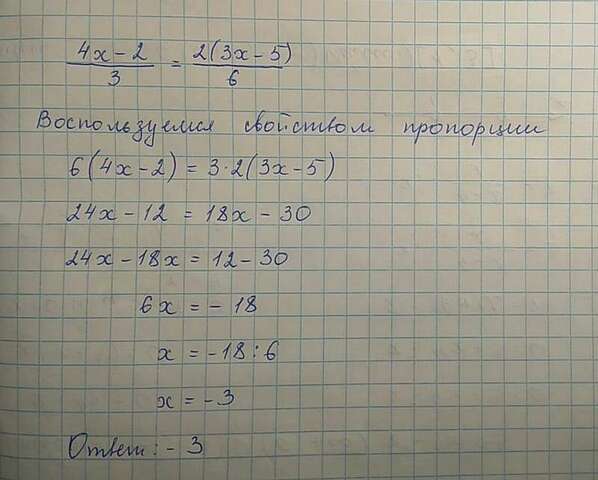 (4x-2)/3 = 2(3x-5)/6
Воспользуемся свойством пропорции
6(4x-2)=3·2(3x-5)
24x-12=18x-30
24x-18x=12-30
6x=-18
x=-18:6
x=-3
Ответ: -3